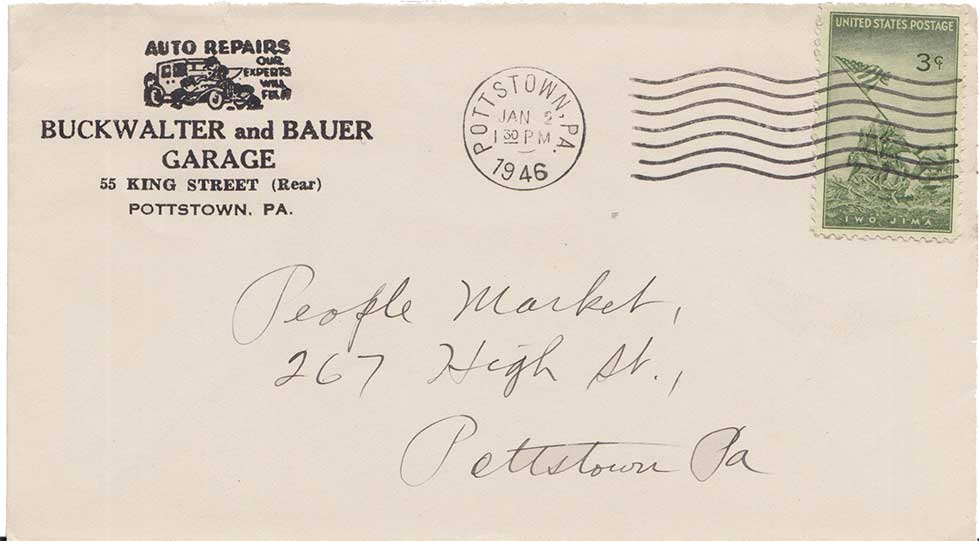 AUTO REPAIRS
OUR
EXPERTS
WILL
FIX IT
BUCKWALTER and BAUER
GARAGE
55 KING STREET (Rear)
POTTSTOWN, PA.
POTTSTOWN, PA.
JAN 2
1 30 PM
1946
UNITED STATES POSTAGE
3¢
IWO JIMA
People Market,
267 High St.,
Pottstown Pa